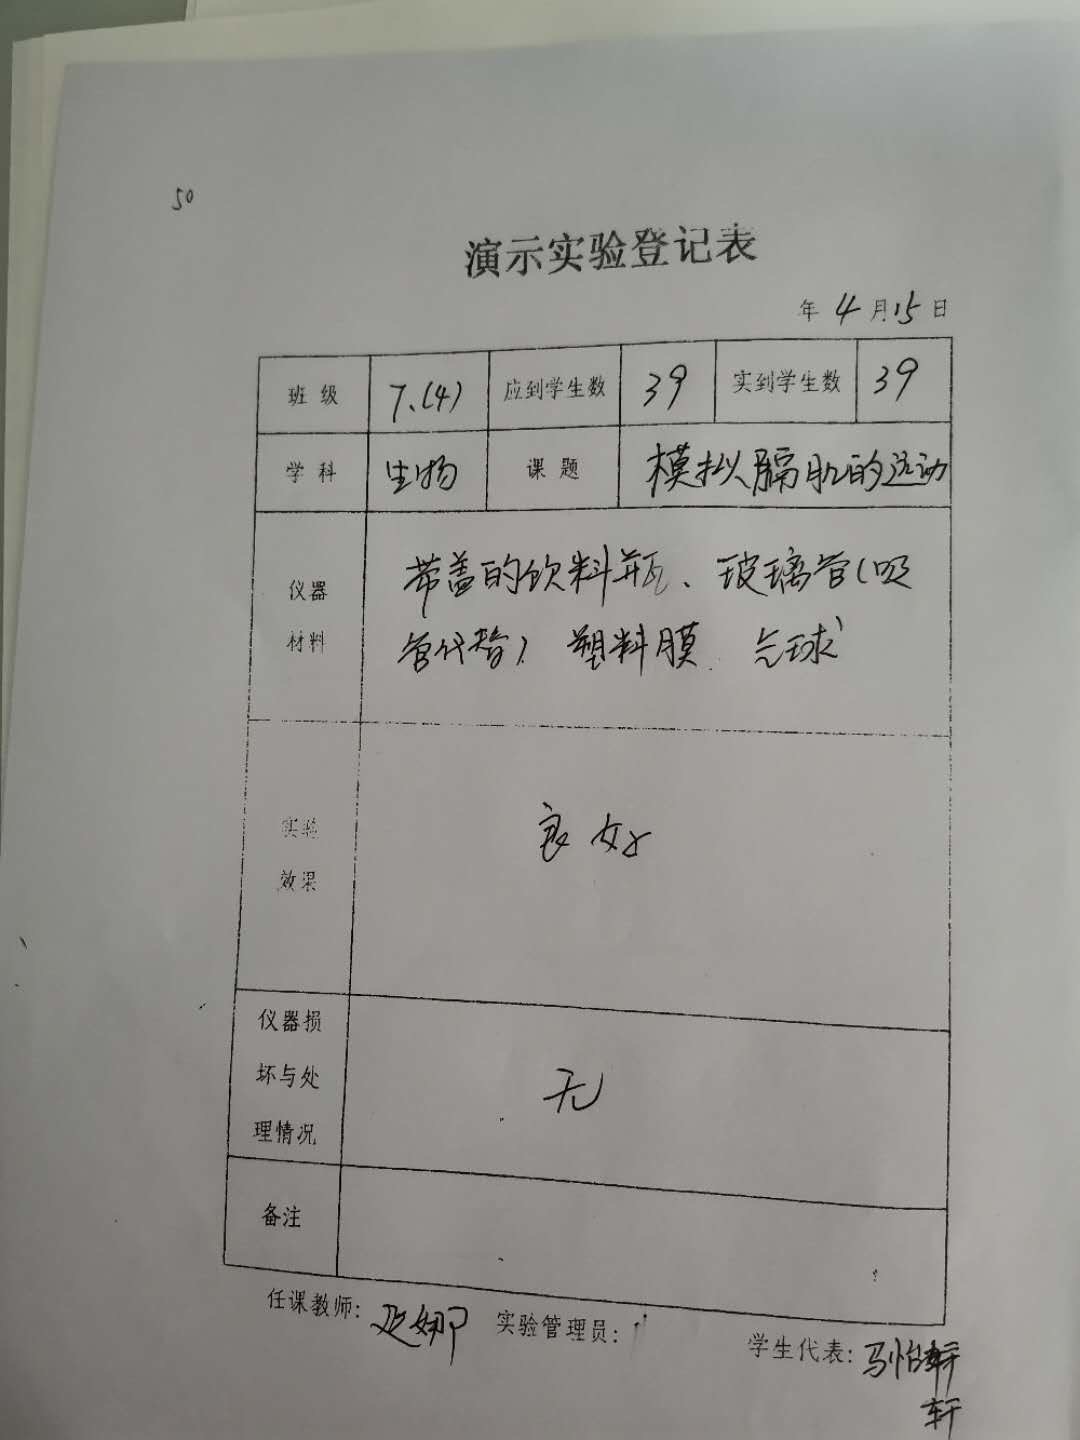 50
演示实验登记表
年 4 月 15 日
班级 7.(4) 应到学生数 39 实到学生数 39
学科 生物 课题 模拟膈肌的运动
仪器
材料
带盖的饮料瓶、玻璃管(吸
管代替) 塑料膜 气球
实验
效果
良好
仪器损
坏与处
理情况
无
备注
任课教师: 娜 实验管理员: 学生代表: 马怡
轩